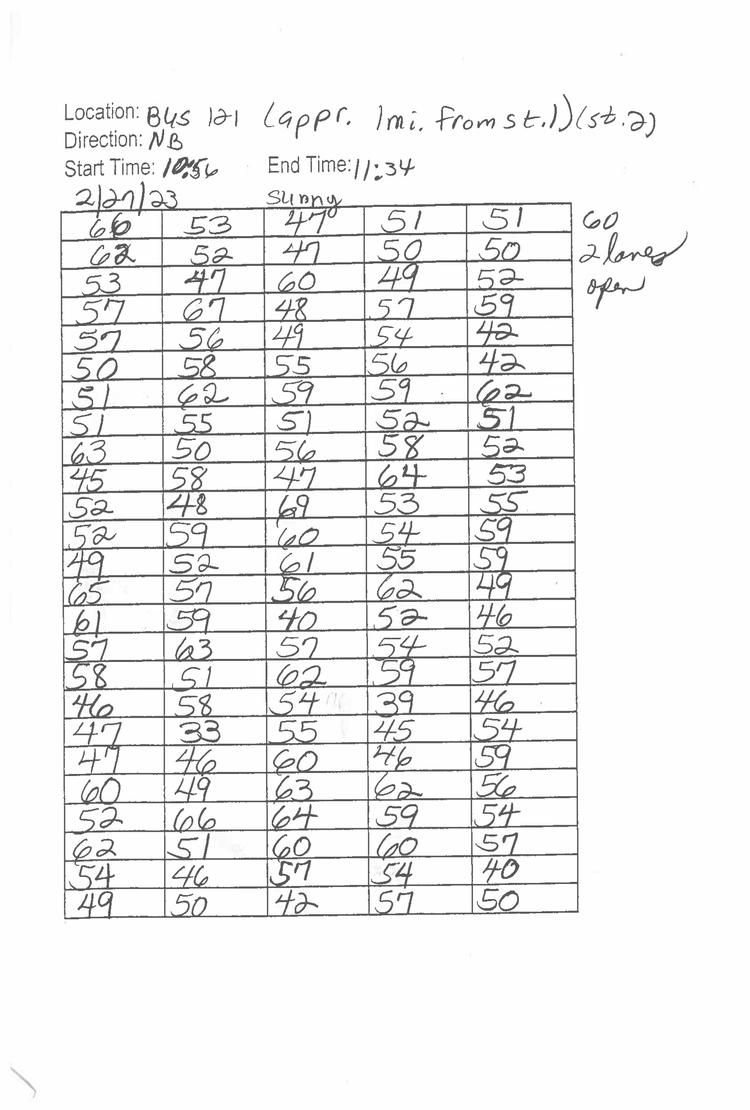 Location: BUS 121 (appr. 1mi. from st.1)(st.2)
Direction: NB
Start Time: 10:56 End Time: 11:34
2/27/23 sunny
66 53 47 51 51 60
62 52 47 50 50 2 lanes
53 47 60 49 52 open
57 67 48 57 59
57 56 49 54 42
50 58 55 56 42
51 62 59 59 62
51 55 51 52 51
63 50 56 58 52
45 58 47 64 53
52 48 69 53 55
52 59 60 54 59
49 52 61 55 59
65 57 56 62 49
61 59 40 52 46
57 63 57 54 52
58 51 62 59 57
46 58 54 39 46
47 33 55 45 54
47 46 60 46 59
60 49 63 62 56
52 66 64 59 54
62 51 60 60 57
54 46 57 54 40
49 50 42 57 50